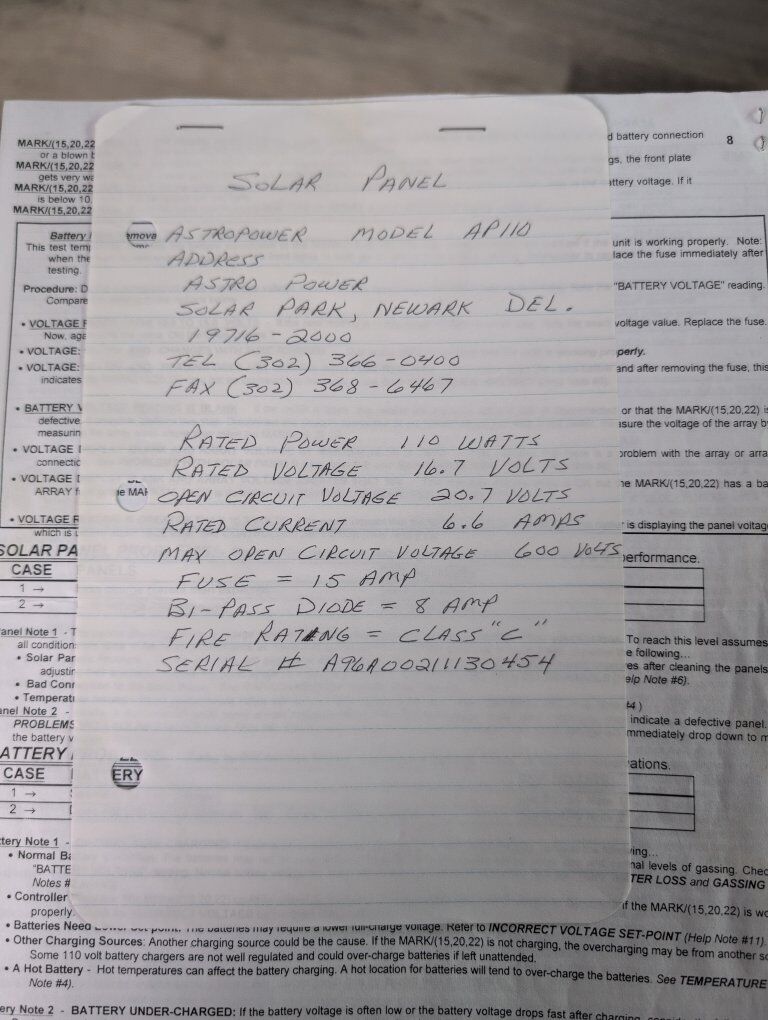 MARK/(15,20,22
or a blown
MARK/(15,20,22
gets very
MARK/(15,20,22
is below 10
MARK/(15,20,22
d battery connection 8
gs, the front plate
ttery voltage. If it
SOLAR PANEL
ASTROPOWER MODEL AP110
ADDRESS
ASTRO POWER
SOLAR PARK, NEWARK DEL.
19716-2000
TEL (302) 366-0400
FAX (302) 368-6467
RATED POWER 110 WATTS
RATED VOLTAGE 16.7 VOLTS
OPEN CIRCUIT VOLTAGE 20.7 VOLTS
RATED CURRENT 6.6 AMPS
MAX OPEN CIRCUIT VOLTAGE 600 VOLTS
FUSE = 15 AMP
BI-PASS DIODE = 8 AMP
FIRE RATING = CLASS "C"
SERIAL # A96A00211130454
emova
e MAR
ERY
Battery
This test tem
when the
testing.
Procedure: D
Compare
• VOLTAGE
Now, aga
• VOLTAGE:
• VOLTAGE:
indicates
• BATTERY
defective
measurin
• VOLTAGE
connectic
• VOLTAGE
ARRAY
• VOLTAGE
which is
unit is working properly. Note:
lace the fuse immediately after
"BATTERY VOLTAGE" reading.
voltage value. Replace the fuse.
perly.
and after removing the fuse, this
or that the MARK/(15,20,22) is
sure the voltage of the array
problem with the array or arra
e MARK/(15,20,22) has a ba
is displaying the panel voltag
SOLAR PA
CASE
1 →
2 →
erformance.
anel Note 1 - T
all condition
• Solar Par
adjustir
• Bad Conr
• Temperat
anel Note 2 -
PROBLEMS
the battery
To reach this level assumes
e following...
es after cleaning the panels
elp Note #6).
#4)
indicate a defective panel.
mmediately drop down to
ATTERY
CASE
1 →
2 →
ations.
tery Note 1 -
• Normal Ba
"BATTE
Notes #
• Controller
properly.
ing...
nal levels of gassing. Chec
TER LOSS and GASSING
if the MARK/(15,20,22) is wo
• Batteries Need Lower Set point. The batteries may require a lower full-charge voltage. Refer to INCORRECT VOLTAGE SET-POINT (Help Note #11).
• Other Charging Sources: Another charging source could be the cause. If the MARK/(15,20,22) is not charging, the overcharging may be from another so
Some 110 volt battery chargers are not well regulated and could over-charge batteries if left unattended.
• A Hot Battery - Hot temperatures can affect the battery charging. A hot location for batteries will tend to over-charge the batteries. See TEMPERATURE
Note #4).
ery Note 2 - BATTERY UNDER-CHARGED: If the battery voltage is often low or the battery voltage drops fast after charging,